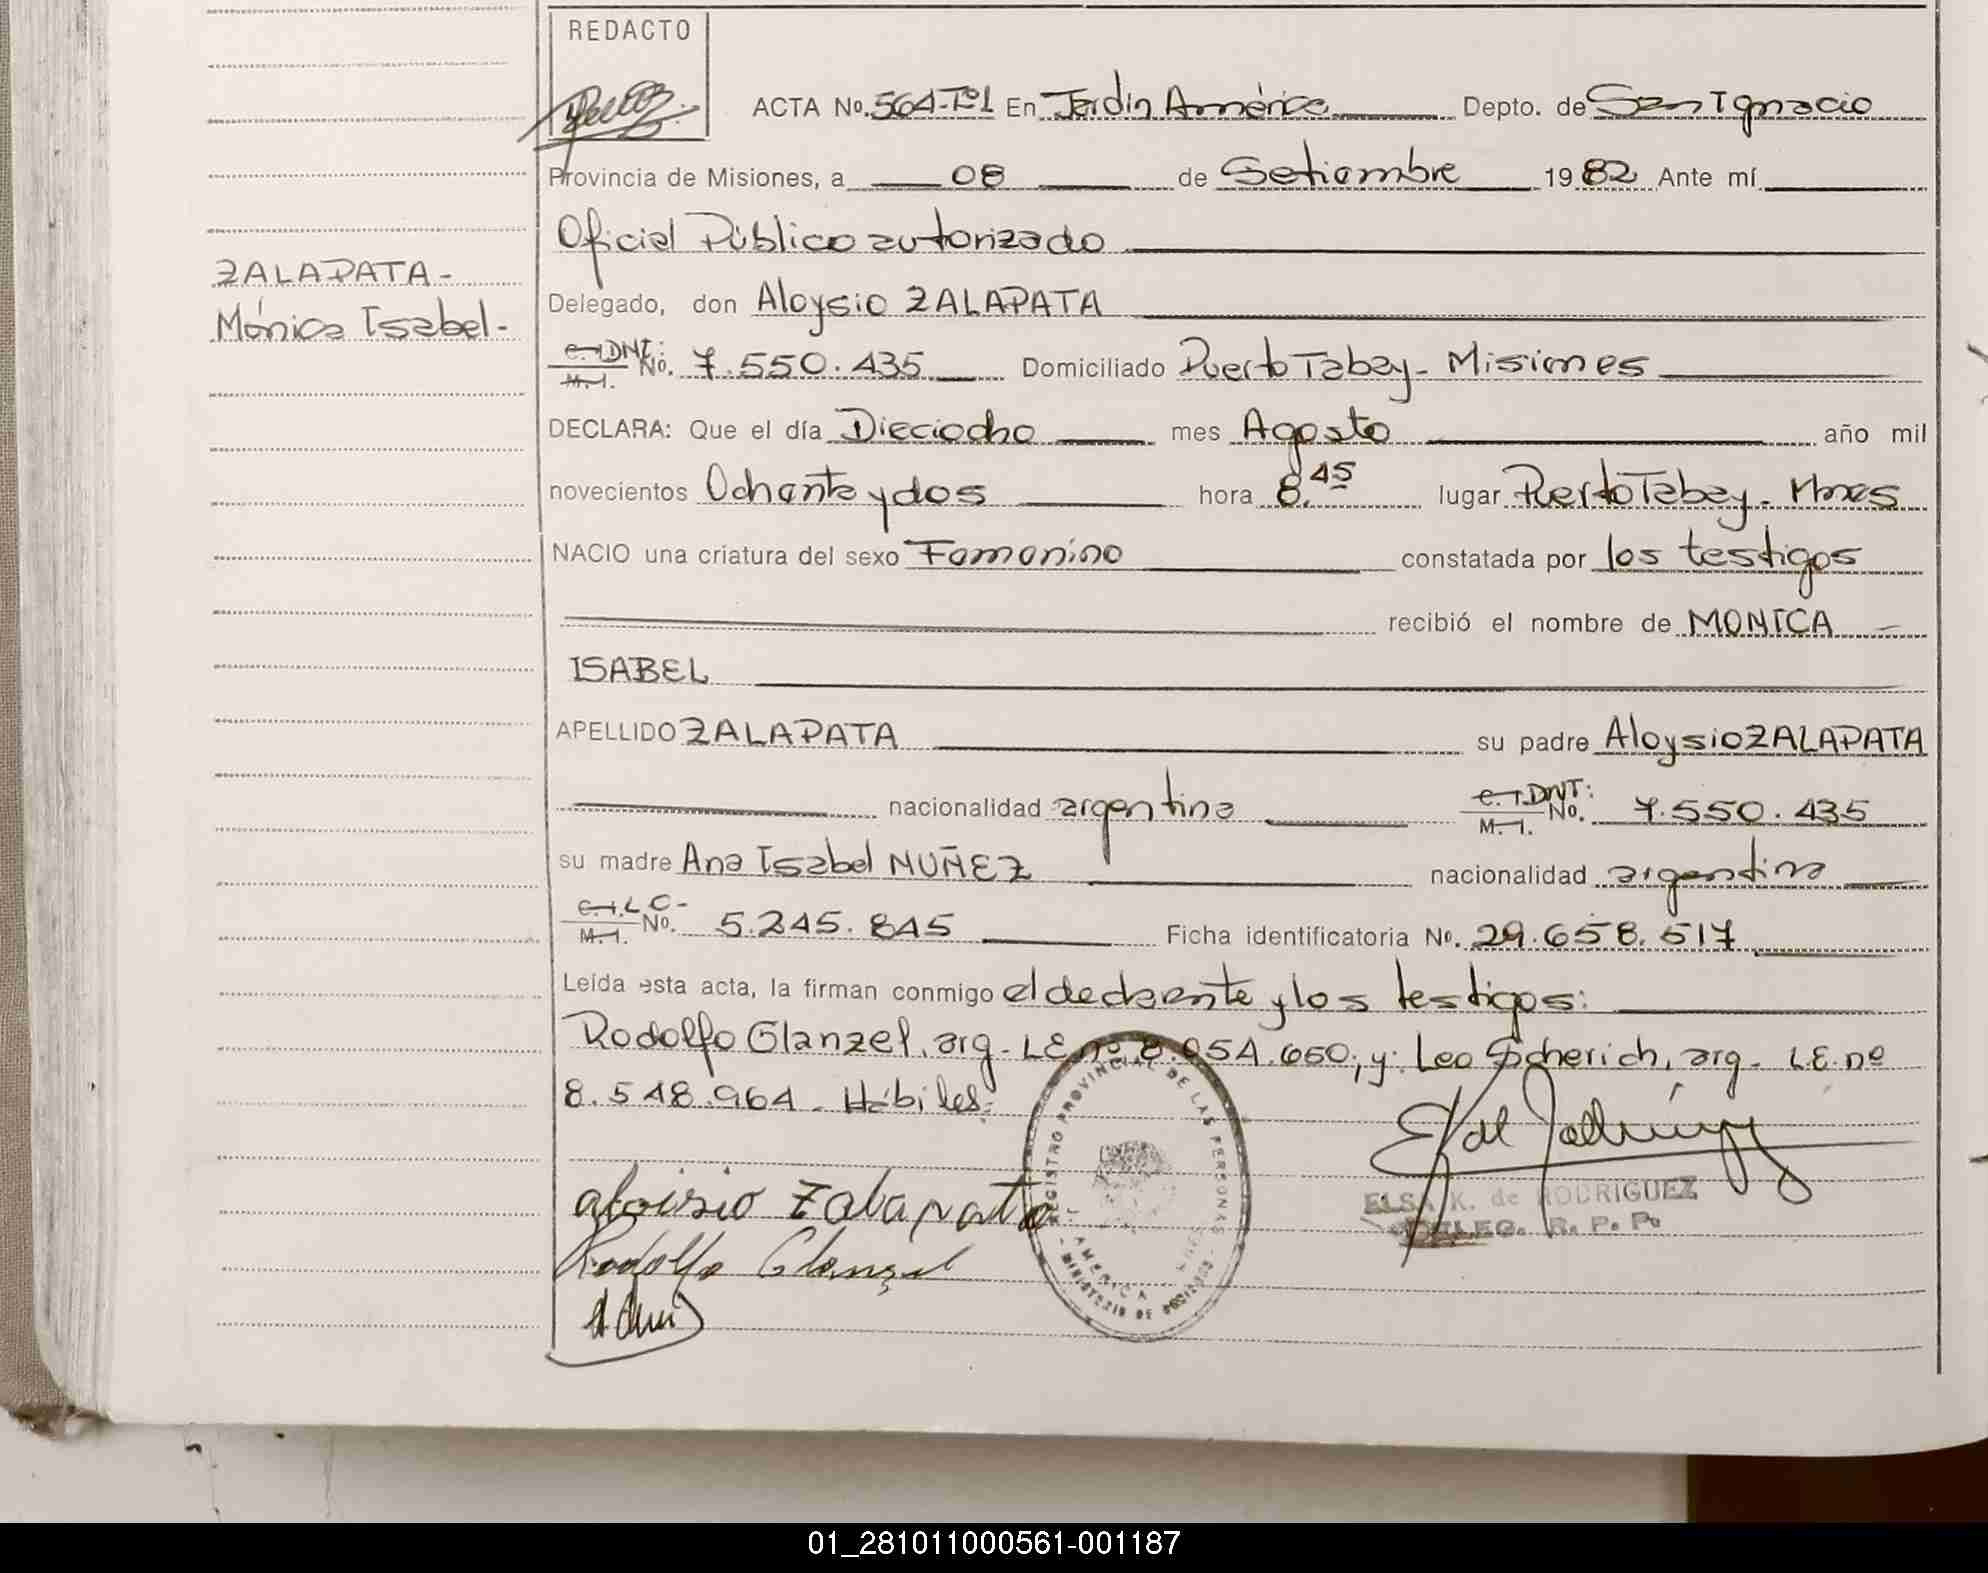 REDACTO
ACTA No. 564-Tº1 En Jardín América Depto. de San Ignacio
Provincia de Misiones, a 08 de Setiembre 1982 Ante mí
Oficial Público autorizado
ZALAPATA-
Mónica Isabel-
Delegado, don Aloysio ZALAPATA
C.I. DNI: M.I. No. 7.550.435 Domiciliado Puerto Tabay- Misiones
DECLARA: Que el día Dieciocho mes Agosto año mil
novecientos Ochenta y dos hora 8.45 lugar Puerto Tabay- Mnes
NACIO una criatura del sexo Femenino constatada por los testigos
recibió el nombre de MONICA
ISABEL
APELLIDO ZALAPATA su padre Aloysio ZALAPATA
nacionalidad argentina C.I. DNI: M.I. No. 7.550.435
su madre Ana Isabel NUÑEZ nacionalidad argentina
C.I. L.C- M.I. No. 5.245.845 Ficha identificatoria No. 29.658.517
Leída esta acta, la firman conmigo el declarante y los testigos:
Rodolfo Glanzel, arg- LE nº 8.054.650; y: Leo Scherich, arg- LE. nº
8.548.964- Hábiles-
REGISTRO PROVINCIAL DE LAS PERSONAS
AMERICA
MINISTERIO DE
ELSA K. de RODRIGUEZ
DELEG. R. P. P.
aloisio Zalapata
Rodolfo Glanzel
01_281011000561-001187